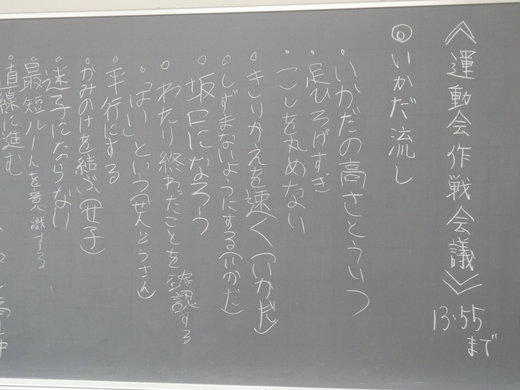 ≪運動会作戦会議≫ 13:55まで
◎いかだ流し
・いかだの高さとういつ
・足ひろげすぎ
・こしを丸めない
・きりかえを速く(いかだ)
・しずまないようにする(いかだ)
・坂口になろう
・わたり終わったことを確認する
・「はい」という(せんとうさん)
・平行にする
・かみのけを結ぶ(女子)
・迷子にならない
・最短ルートを意識する
・直線に進む